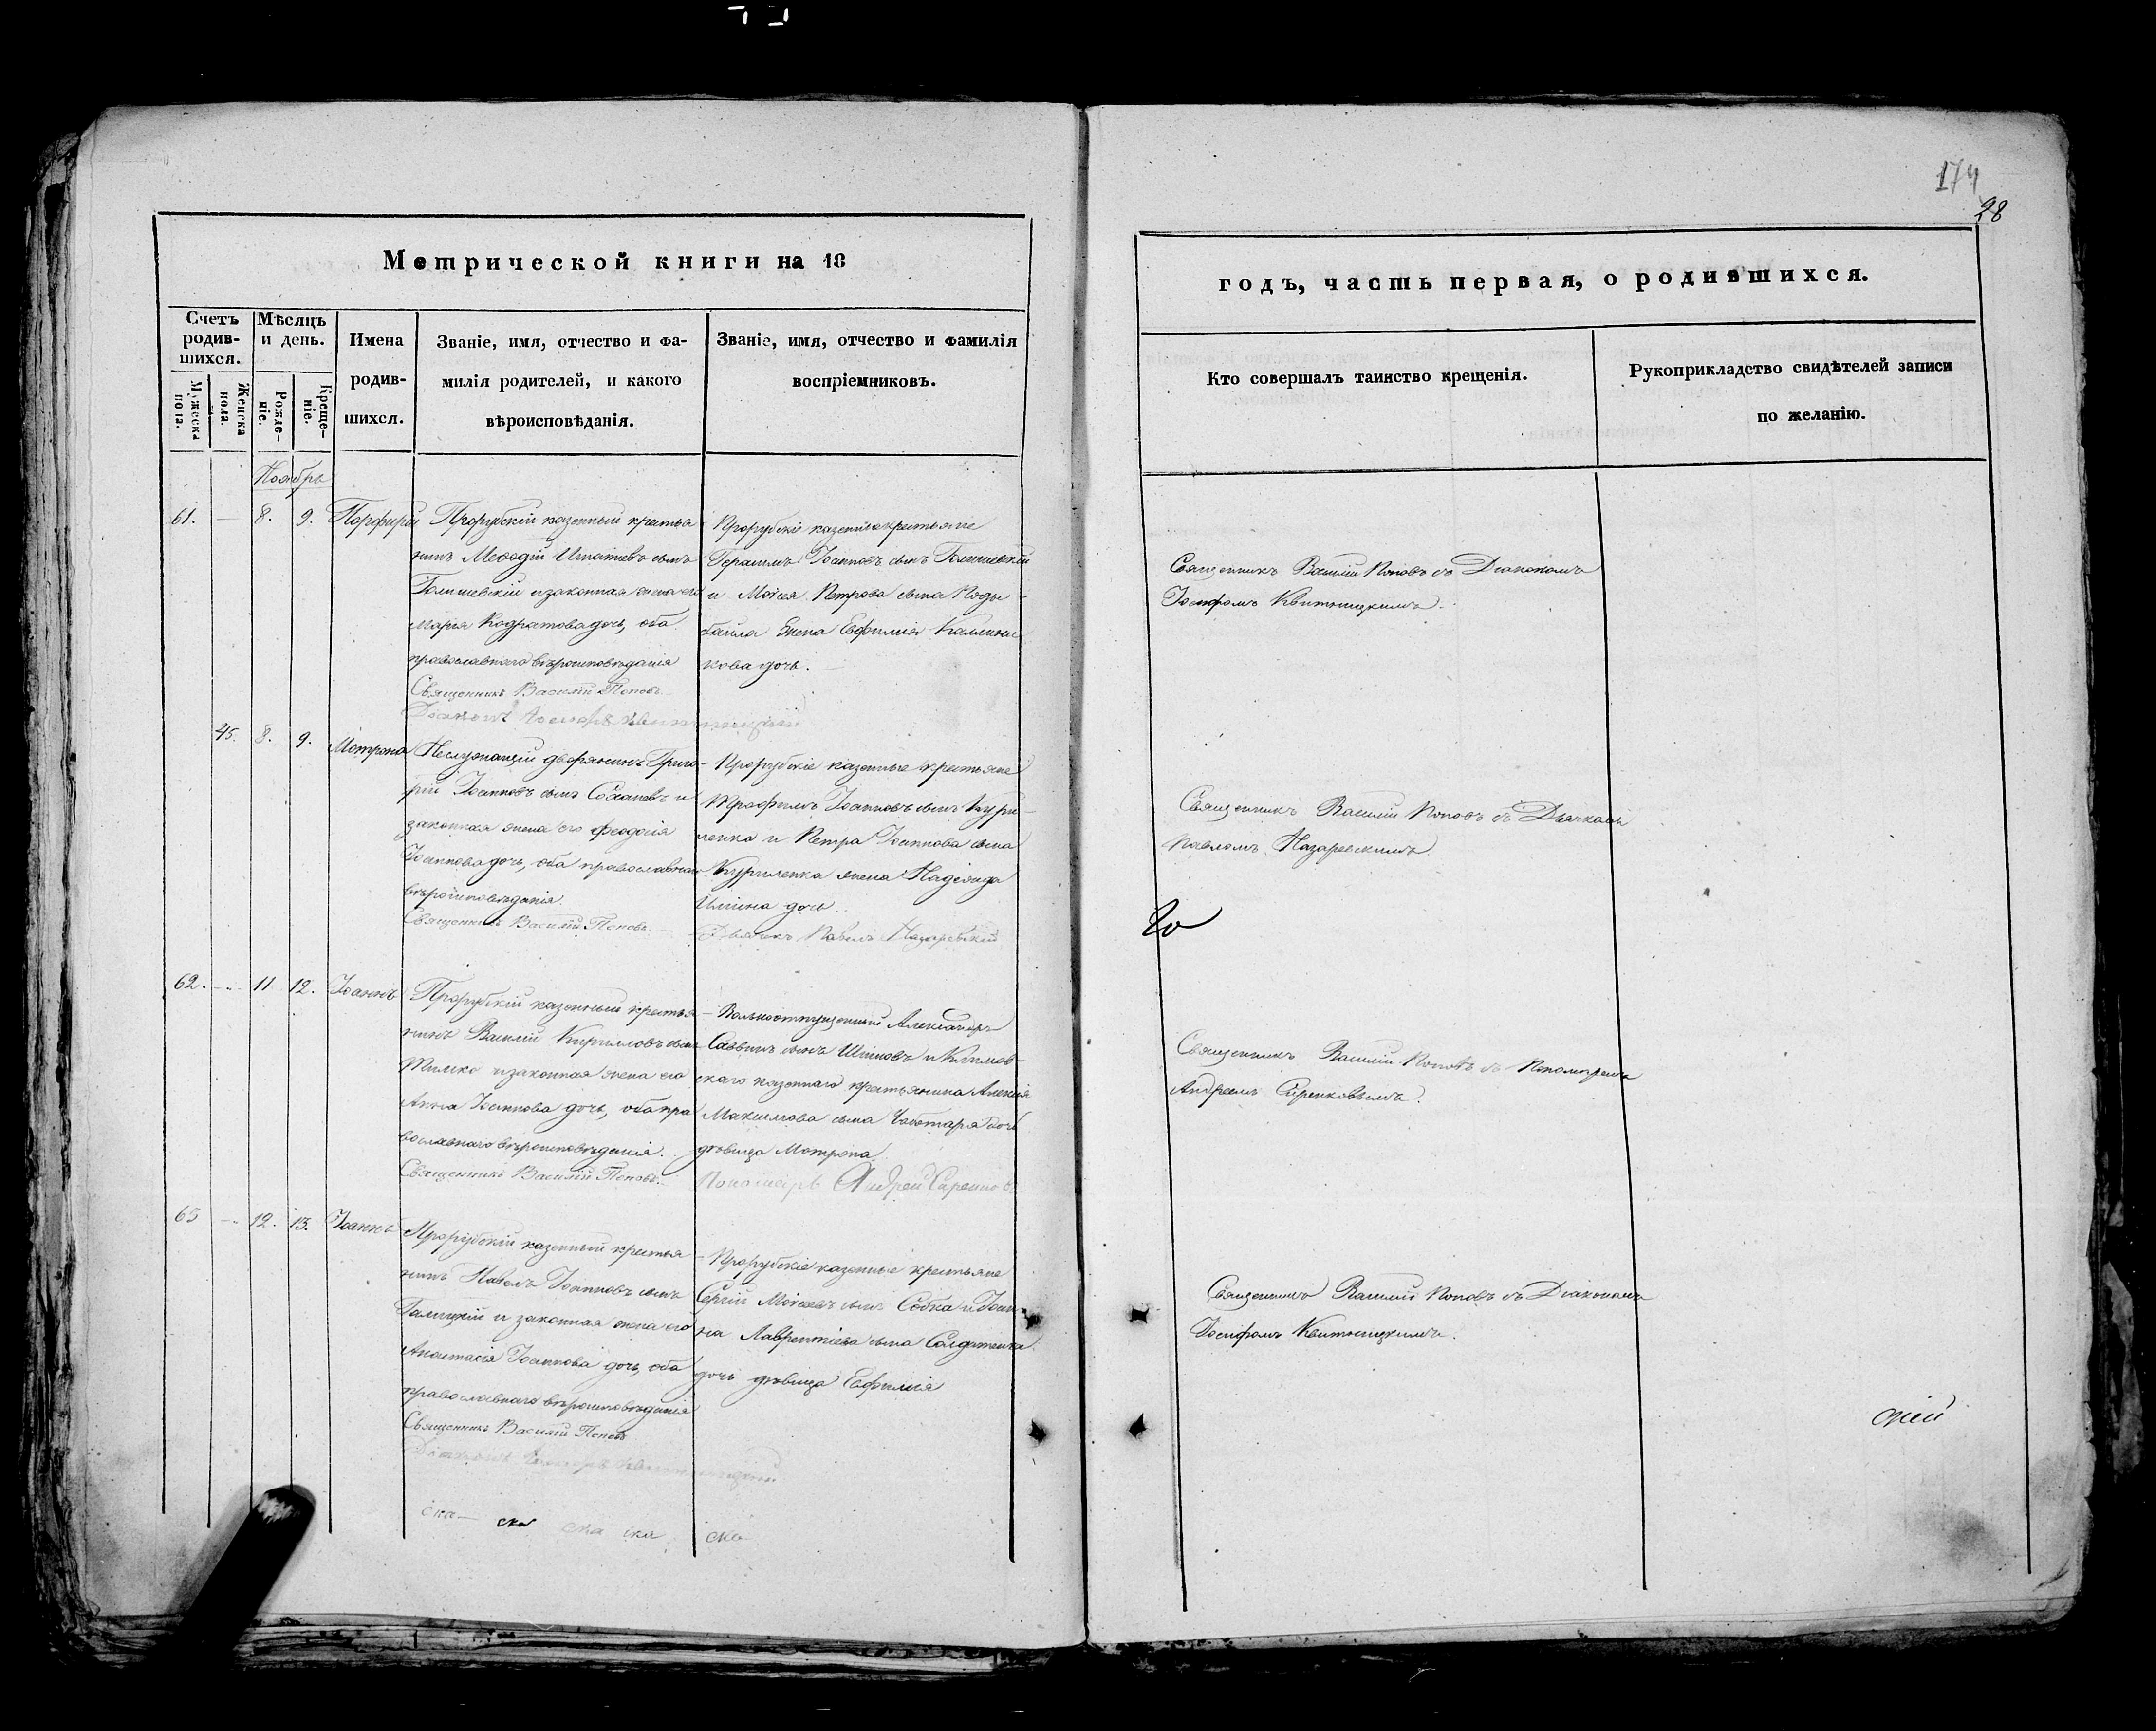 174
28
Метрической книги на 18
годъ, часть первая, о родившихся.
Счетъ родив-шихся.
Мужеска пола.
Женска пола.
Мѣсяцъ и день.
Рожде-ніе.
Креще-ніе.
Имена
родив-
шихся.
Званіе, имя, отчество и фа-
милія родителей, и какого
вѣроисповѣданія.
Званіе, имя, отчество и фамилія
воспріемниковъ.
Кто совершалъ таинство крещенія.
Рукоприкладство свидѣтелей записи
по желанію.
Ноябрь
61. — 8. 9. Порфирій
Прорубскій казенный крестья
нинъ Меѳодій Игнатіевъ сынъ
и законная жена его
Марія Кодратова дочь, оба
православнаго вѣроисповѣданія
Священникъ Василій Поповъ.
Діаконъ Іосифъ Квитницкій
Прорубскіе казенные крестьяне
Герасимъ Іоанновъ сынъ
и Моисея Петрова сына Поды-
байла жена Евфимія Каллини-
кова дочь.
Священникъ Василій Поповъ съ Діакономъ
Іосифомъ Квитницкимъ.
45. 8. 9. Мотрона
Неслужащій дворянинъ Григо-
рій Іоанновъ сынъ и
законная жена его Феодосія
Іоаннова дочь, оба православнаго
вѣроисповѣданія.
Священникъ Василій Поповъ.
Прорубскіе казенные крестьяне
Трофимъ Іоанновъ сынъ Кури-
ленка и Петра Іоаннова сына
Куриленка жена Надежда
Ильина дочь.
Дьячекъ Павелъ Назаревскій
Священникъ Василій Поповъ съ Дьячкомъ
Павломъ Назаревскимъ.
62. — 11 12. Іоаннъ
Прорубскій казенный крестья
нинъ Василій Кирилловъ сынъ
и законная жена его
Анна Іоаннова дочь, оба пра
вославнаго вѣроисповѣданія.
Священникъ Василій Поповъ.
Вольноотпущенный Александръ
Саввинъ сынъ и Климов-
скаго казеннаго крестьянина Алексія
Максимова сына Чоботаря дочь
дѣвица Мотрона.
Пономарь Андрей
Священникъ Василій Поповъ съ Пономаремъ
Андреемъ
63 — 12. 13. Іоаннъ
Прорубскій казенный крестья
нинъ Павелъ Іоанновъ сынъ
Галицкій и законная жена его
Анастасія Іоаннова дочь, оба
православнаго вѣроисповѣданія
Священникъ Василій Поповъ
Діаконъ Іосифъ Квитницкій
Прорубскіе казенные крестьяне
Сергій Моисеевъ сынъ Собка и Іоан-
на Лаврентіева сына Солдатенка
дочь дѣвица Евфимія
Священникъ Василій Поповъ съ Діакономъ
Іосифомъ Квитницкимъ.
ска— ска ска ска ска